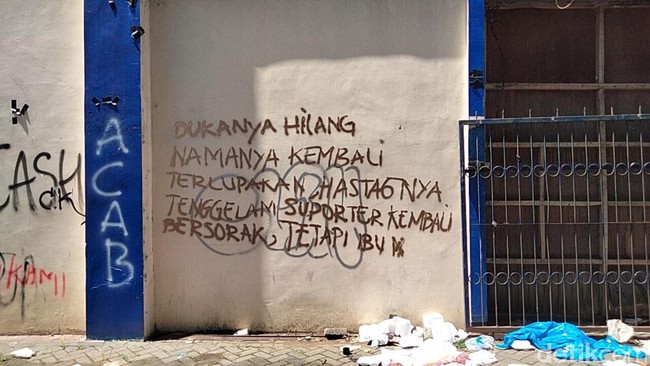 DUKANYA HILANG
NAMANYA KEMBALI
TERLUPAKAN, HASTAG'NYA.
TENGGELAM SUPORTER KEMBALI
BERSORAK, TETAPI IBU
ACAB
CASH
KAMI
detikcom